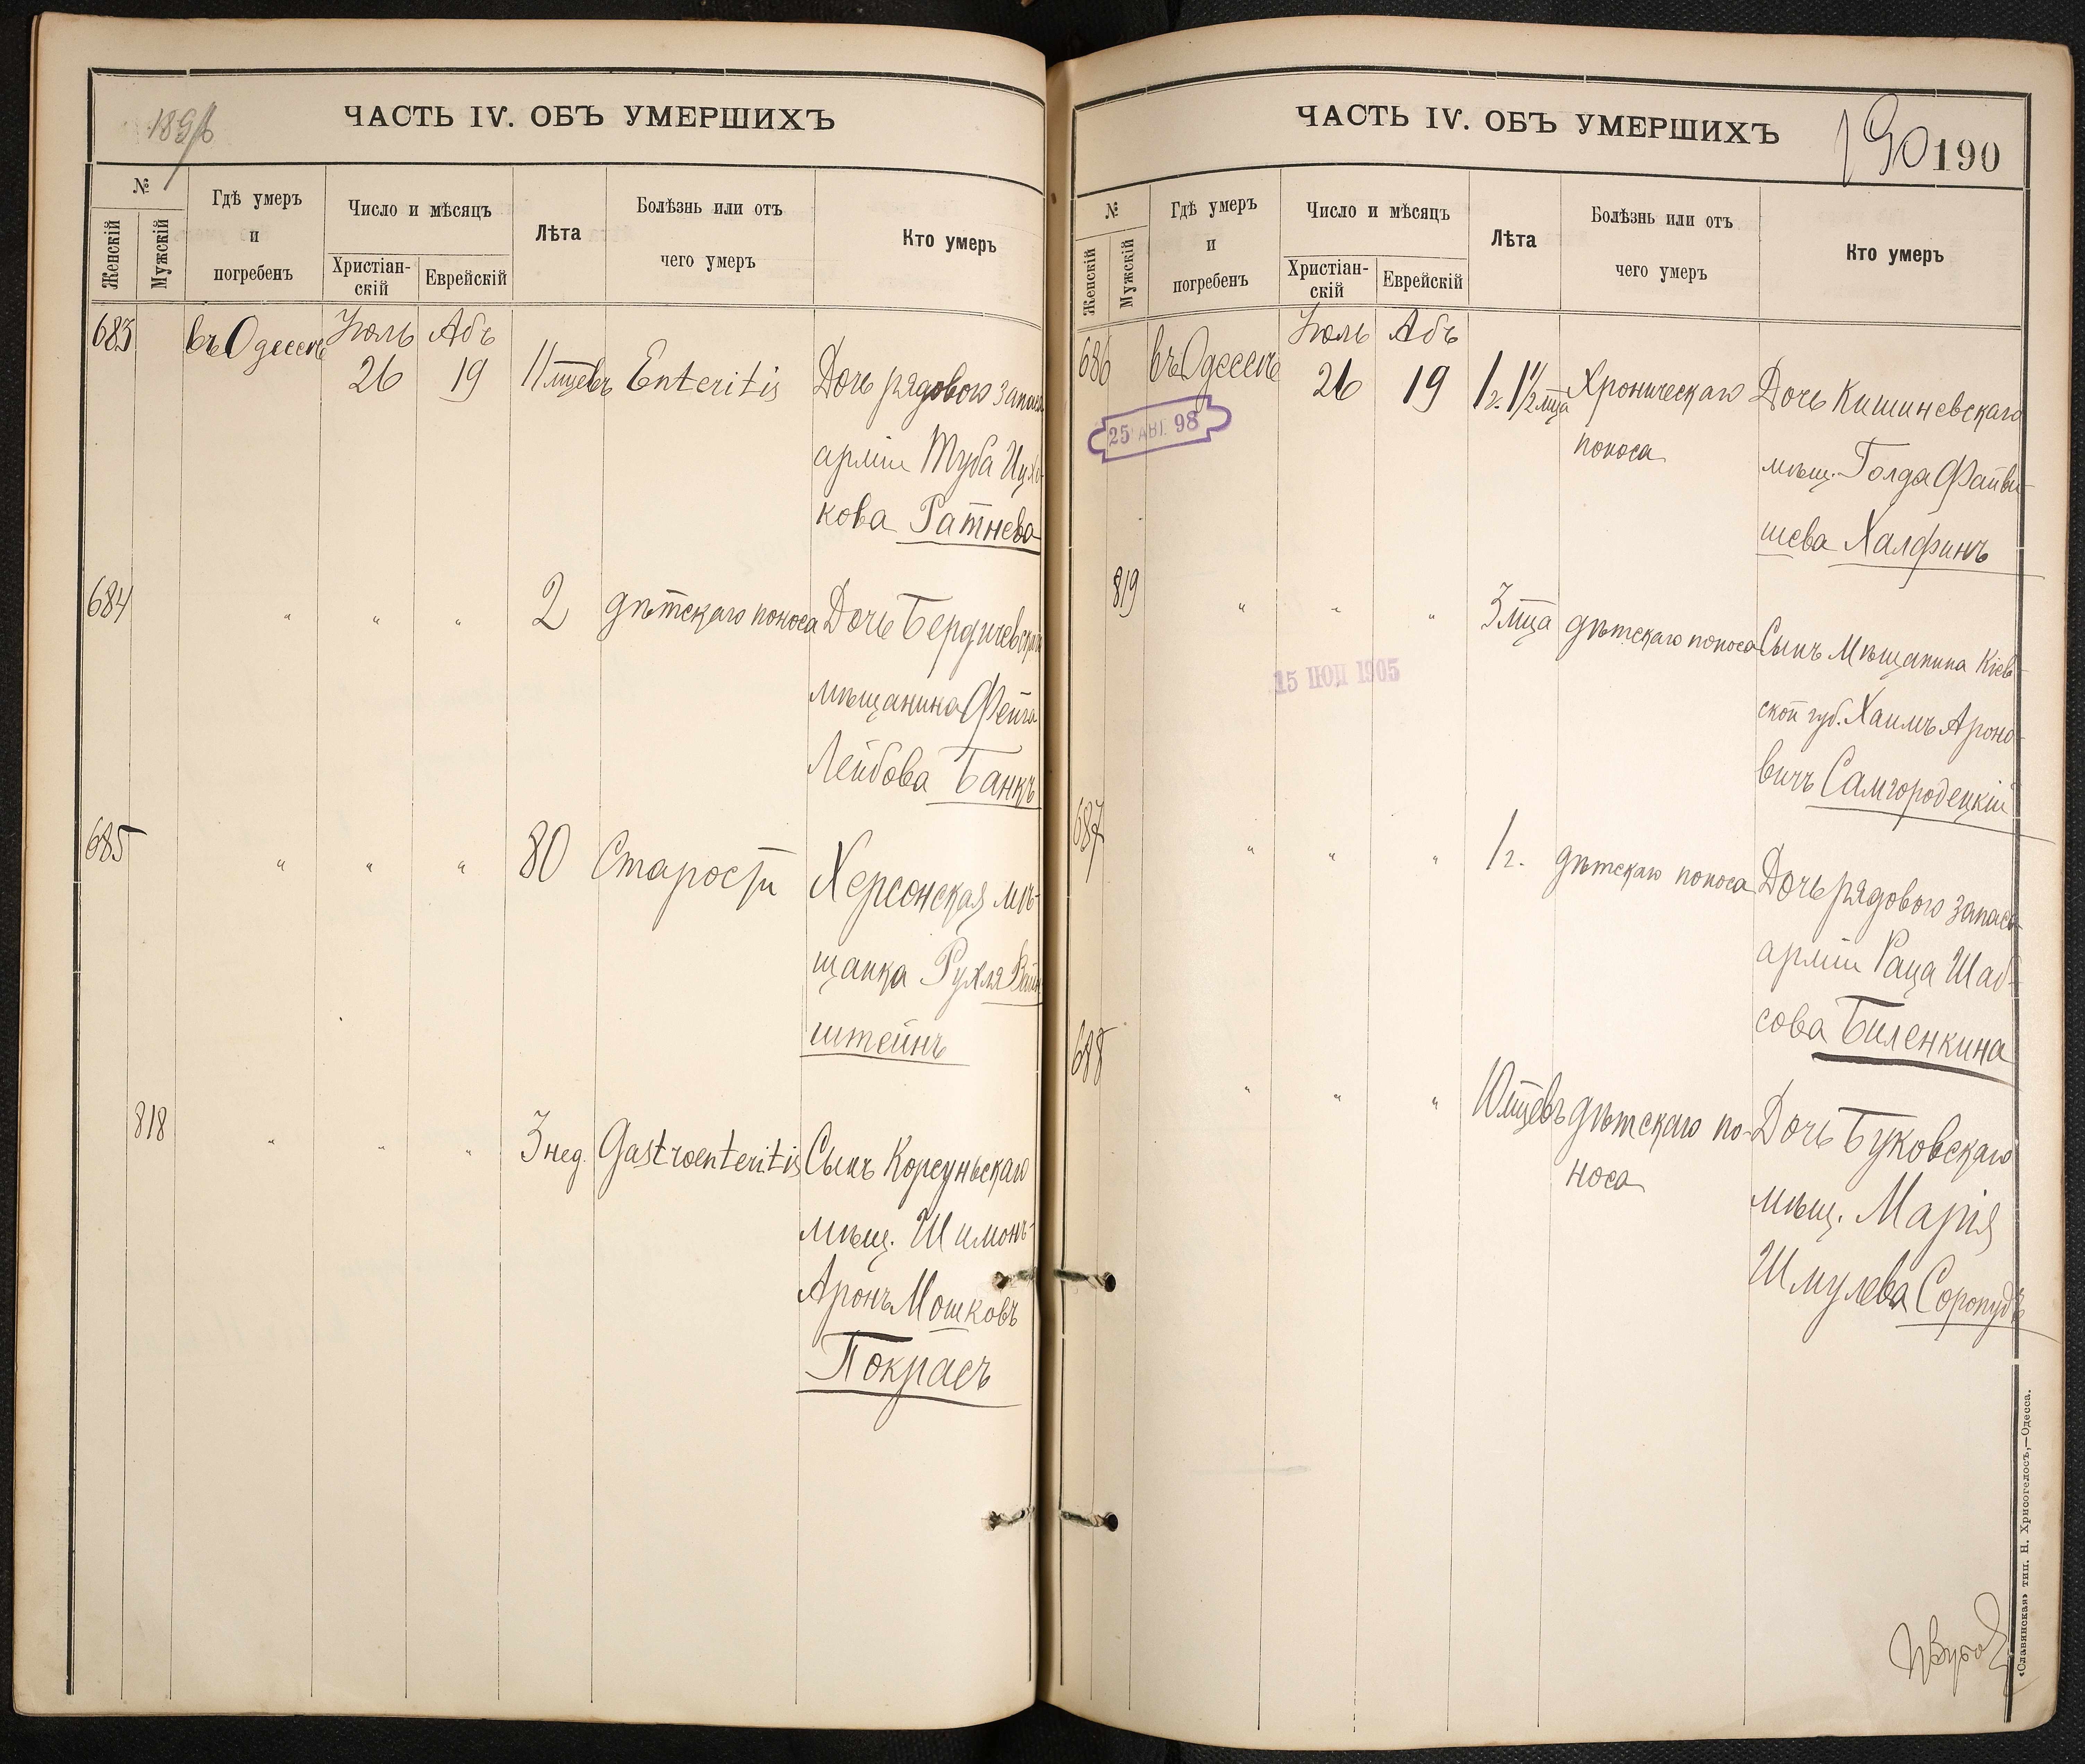 1896
ЧАСТЬ IV. ОБЪ УМЕРШИХЪ
№
Женскій
Мужскій
Гдѣ умеръ
и
погребенъ
Число и мѣсяцъ
Христіан-
скій
Еврейскій
Лѣта
Болѣзнь или отъ
чего умеръ
Кто умеръ
683 въ Одессѣ Іюль 26 Абъ 19 11 мцевъ Enteritis Дочь рядового запаса
арміи Туба Ицко-
кова Ратнева
684 " " " 2 дѣтскаго поноса Дочь Бердичевскаго
мѣщанина Фейга
Лейбова Банкъ
685 " " " 80 Старости Херсонская мѣ-
щанка Рухля Вайн-
штейнъ
818 " " " 3 нед. Gastroenteritis Сынъ Корсуньскаго
мѣщ. Шимонъ-
Аронъ Мошковъ
Покрасъ
ЧАСТЬ IV. ОБЪ УМЕРШИХЪ
190 190
№
Женскій
Мужскій
Гдѣ умеръ
и
погребенъ
Число и мѣсяцъ
Христіан-
скій
Еврейскій
Лѣта
Болѣзнь или отъ
чего умеръ
Кто умеръ
686 въ Одессѣ Іюль 26 Абъ 19 1 г. 1 1/2 мца Хроническаго Дочь Кишиневскаго
поноса мѣщ. Голда Файви-
шева Халфинъ
25 АВГ. 98
819 " " " 3 мца дѣтскаго поноса Сынъ Мѣщанина Кіев-
ской губ. Хаимъ Ароно-
вичъ Самгородецкій
15 ІЮЛ 1905
687 " " " 1 г. дѣтскаго поноса Дочь рядового запаса
арміи Раца Шаб-
сова Биленкина
688 " " " 10 мцевъ дѣтскаго по- Дочь Буковскаго
носа мѣщ. Марія
Шмулева Соропудъ
«Славянская» тип. Н. Хрисогелосъ,—Одесса.